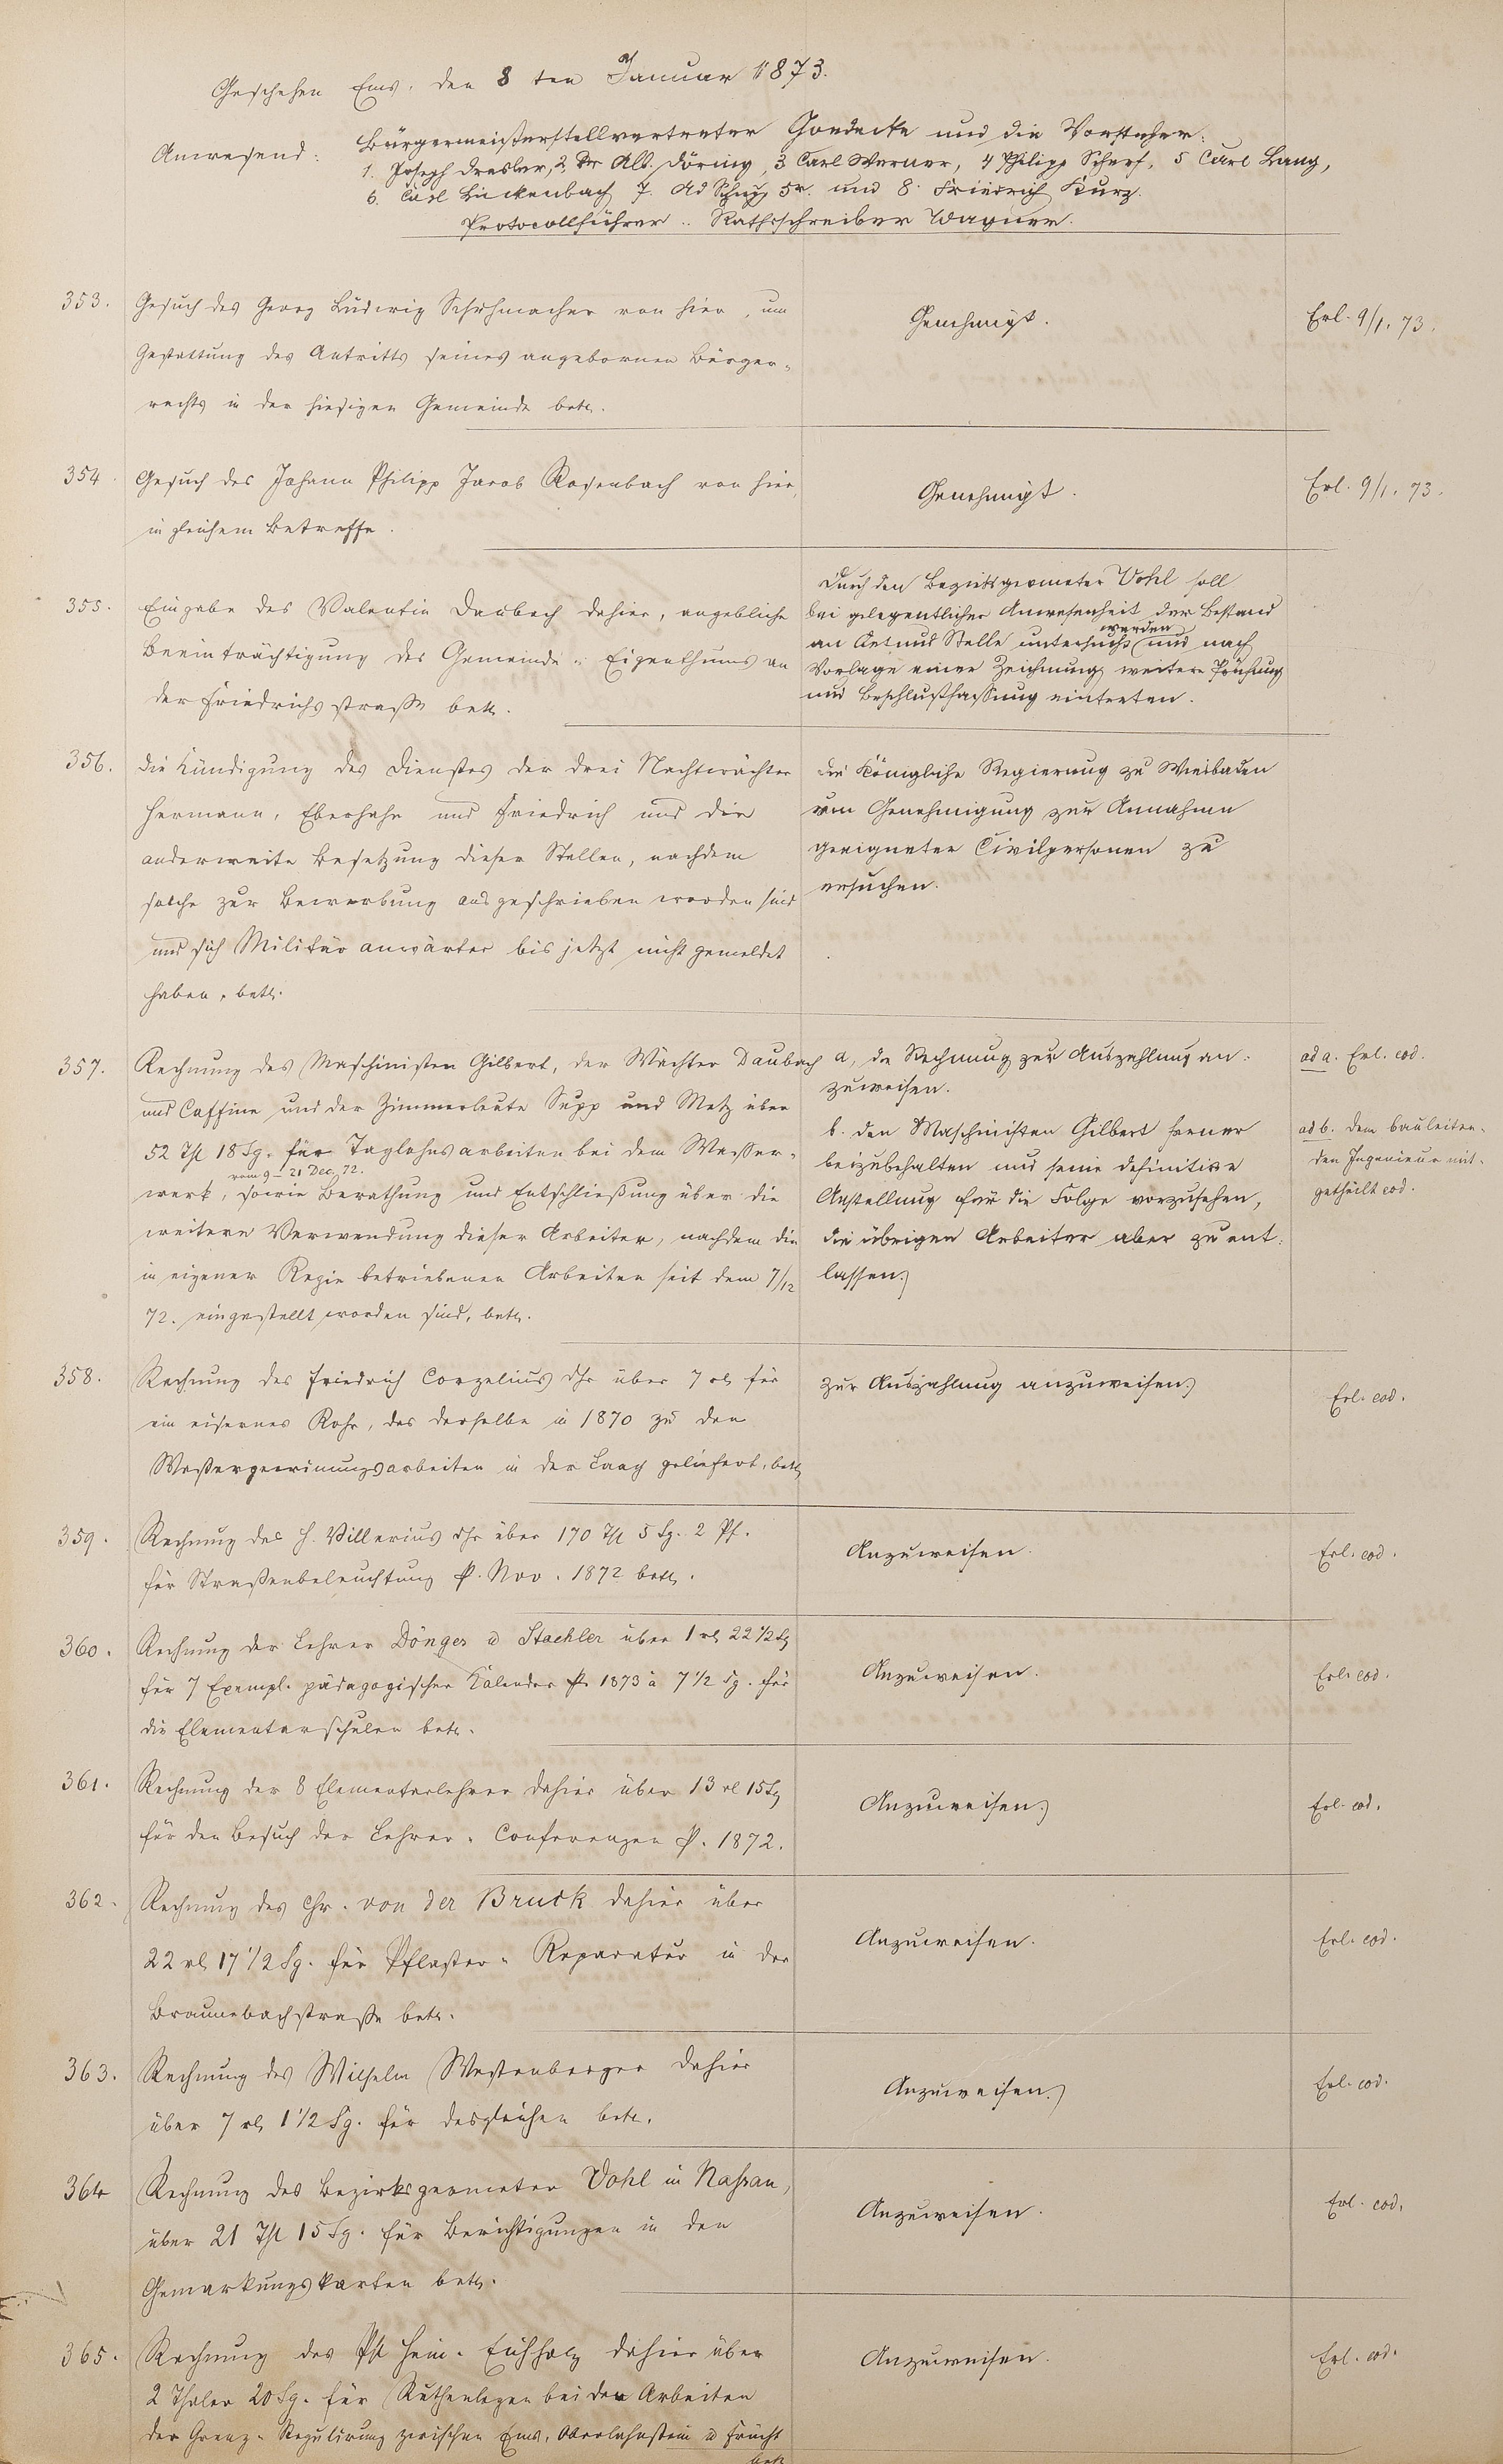 Geschehen Ems, den 8ten Januar 1873.
Anwesend: Bürgermeisterstellvertreter Goedecke und die Vorsteher:
1. Joseph Dresler, 2. Dr Alb. Döring, 3 Carl Werner, 4 Philipp Scherf, 5 Carl Lang,
6. Carl Linkenbach 7. Ad Schupp und 8. Friedrich Kurz.
Protocollführer: Rathsschreiber Wagner.
353. Gesuch des Georg Ludwig Schuhmacher von hier, um
Gestattung des Antritts seines angebornen Bürger-
rechts in der hiesigen Gemeinde betr.
Genehmigt.
Erl. 9/1. 73.
354. Gesuch des Johann Philipp Jacob Rosenbach von hier,
in gleichem Betreffe.
Genehmigt.
Erl. 9/1. 73.
355. Eingabe des Valentin Daubach dahier, angebliche
Beeinträchtigung des Gemeinde-Eigenthums an
der Friedrichsstraße betr.
Durch den Bezirksgeometer Vohl soll
bei gelegentlicher Anwesenheit der Bestand
an Ort und Stelle untersucht werden und nach
Vorlage einer Zeichnung weitere Prüfung
und Beschlußfassung eintreten.
356. Die Kündigung des Dienstes der drei Nachtwächter
Hermann, Eberhahn und Friedrich und die
anderweite Besetzung dieser Stellen, nachdem
solche zur Bewerbung ausgeschrieben worden sind
und sich Militäranwärter bis jetzt nicht gemeldet
haben, betr.
Die Königliche Regierung zu Wiesbaden
um Genehmigung zur Annahme
geeigneter Civilpersonen zu
ersuchen.
357. Rechnung des Maschinisten Gilbert, der Wächter Daubach
und Caffine und der Zimmerleute Supp und Metz über
52 Thl 18 Sg. für Taglohnsarbeiten bei dem Wasser-
vom 9 – 21 Dec. 72.
werk, sowie Berathung und Entschließung über die
weitere Verwendung dieser Arbeiter, nachdem die
in eigener Regie betriebenen Arbeiten seit dem 7/12
72. eingestellt worden sind, betr.
a, die Rechnung zur Auszahlung an-
zuweisen.
b. den Maschinisten Gilbert ferner
beizubehalten und seine definitive
Anstellung für die Folge vorzusehen,
die übrigen Arbeiter aber zu ent-
lassen.
ad a. Erl. eod.
ad b. dem bauleiten-
den Ingenieur mit-
getheilt eod.
358. Rechnung des Friedrich Corzelius dhr über 7 rl für
ein eisernes Rohr, das derselbe in 1870 zu den
Wassergewinnungsarbeiten in der Laag geliefert, betr
Zur Auszahlung anzuweisen.
Erl. eod.
359. Rechnung des H. Villerius dhr über 170 Thl 5 Sg. 2 Pf.
für Straßenbeleuchtung p. Nov. 1872 betr.
Anzuweisen.
Erl. eod.
360. Rechnung der Lehrer Dönges u Staehler über 1 rl 22 1/2 Sg
für 7 Exempl. pädagogischer Kalender p. 1873 à 7 1/2 Sg. für
die Elementarschulen betr.
Anzuweisen.
Erl. eod.
361. Rechnung der 8 Elementarlehrer dahier über 13 rl 15 Sg
für den Besuch der Lehrer-Conferenzen p. 1872.
Anzuweisen.
Erl. eod.
362. Rechnung des Chr. von der Bruck dahier über
22 rl 17 1/2 Sg. für Pflaster-Reparatur in der
Braunebachstraße betr.
Anzuweisen.
Erl. eod.
363. Rechnung des Wilhelm Westenberger dahier
über 7 rl 1 1/2 Sg. für desgleichen betr.
Anzuweisen.
Erl. eod.
364 Rechnung des Bezirksgeometer Vohl in Nassau,
über 21 Thl 15 Sg. für Berichtigungen in den
Gemarkungskarten betr.
Anzuweisen.
Erl. eod.
365. Rechnung des Ph Hein. Eichholz dahier über
2 Thaler 20 Sg. für Ruthenlegen bei den Arbeiten
der Grenz-Regulirung zwischen Ems, Oberlahnstein u Frücht
betr
Anzuweisen.
Erl. eod.